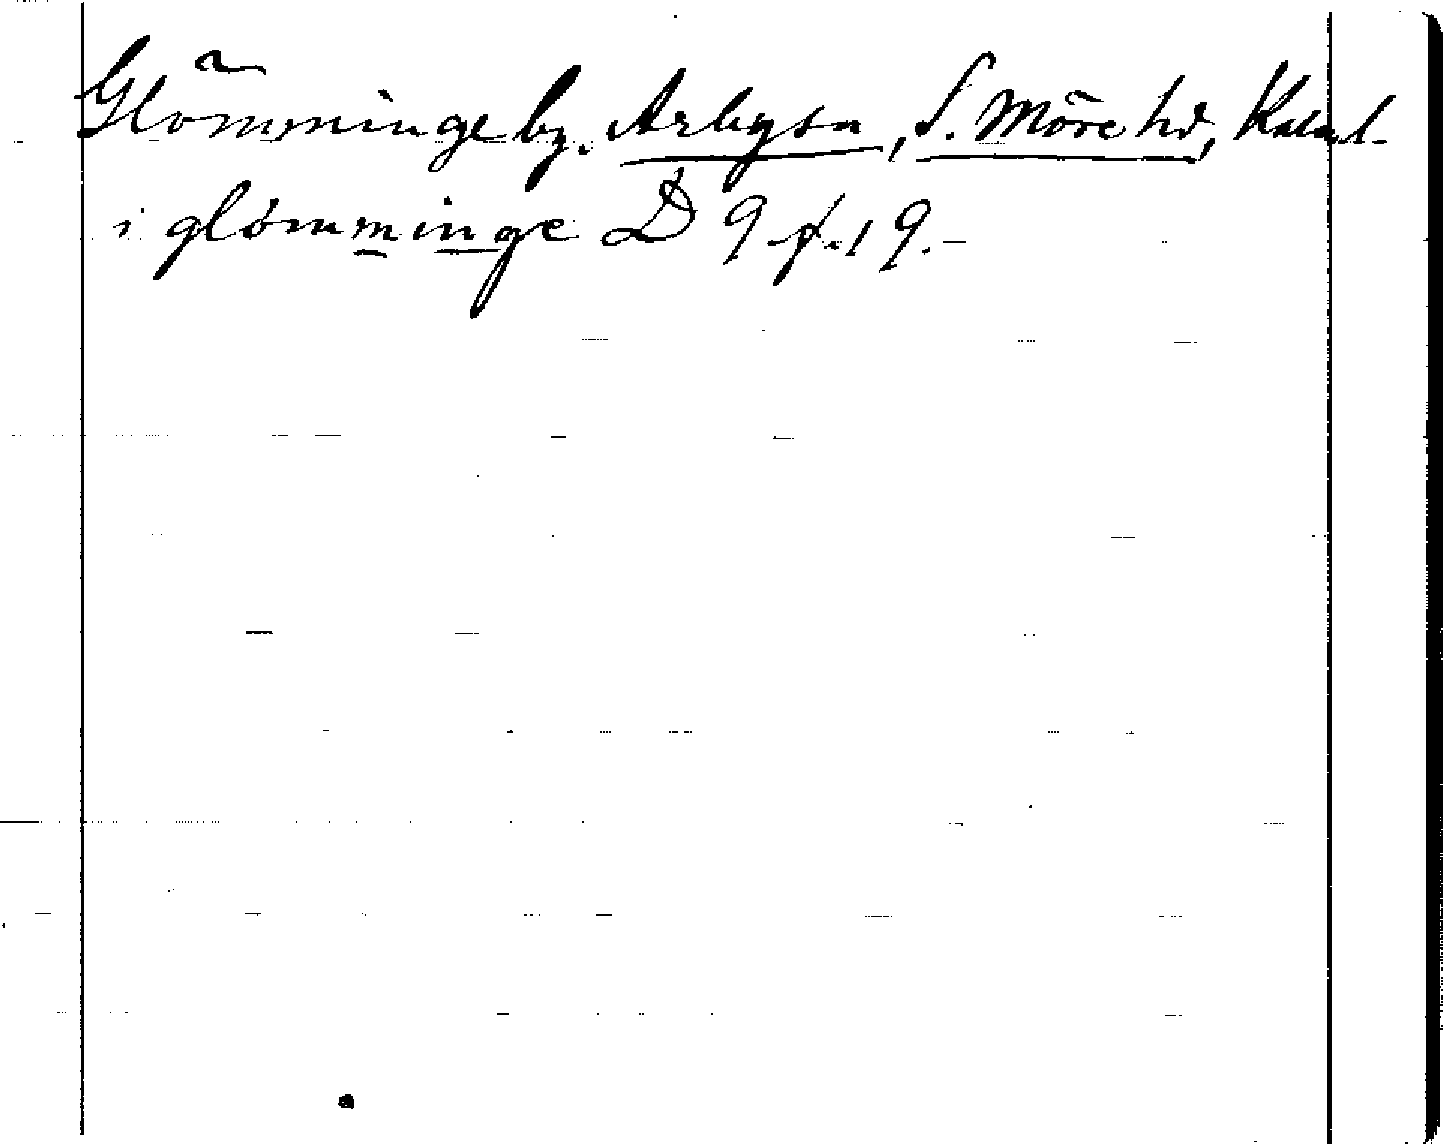 Glömminge by. Arbysn, S. Möre hd, Kalm l.
i glömminge D 9 f. 19.